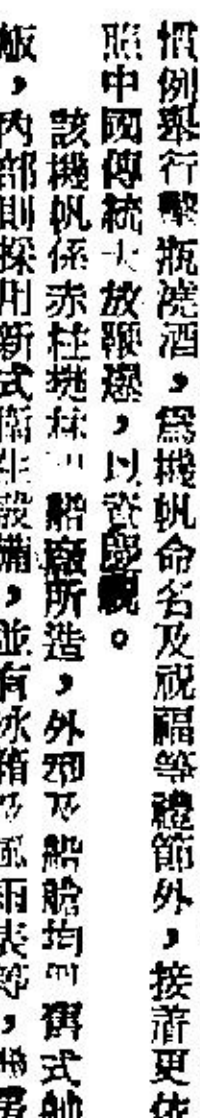 慣例舉行擊瓶澆酒，爲機帆命名及祝福等禮節外，接著更依
照中國傳統大放鞭爆，以資慶祝。
該機帆係赤柱船廠所造，外形及船艙均舊式舢
舨，內部則採用新式衛生設備，並有冰箱及風雨表等，